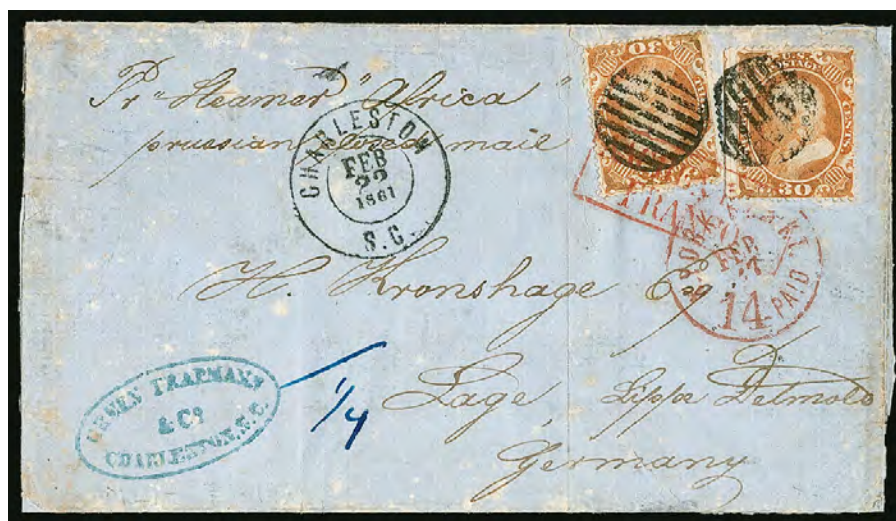 Pr Steamer "Africa"
prussian closed mail
CHARLESTON
FEB
22
1861
S.C.
30
30
CENTS.
POSTAGE
FEB
14
PAID
H. Kronshage Esq
Lage Lippe Detmold
Germany
1/4
TRAPMANN
& Co
CHARLESTON, S.C.